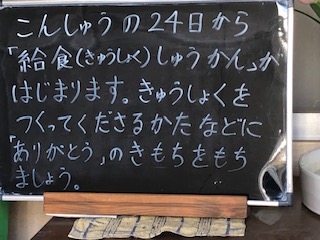 こんしゅうの24日から
「給食(きゅうしょく)しゅうかん」が
はじまります。きゅうしょくを
つくってくださるかたなどに
「ありがとう」のきもちをもち
ましょう。